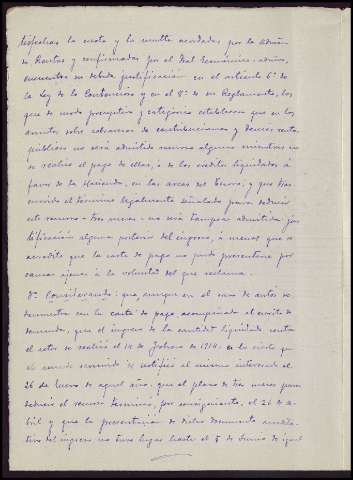 satisfechas la cuota y la multa acordadas por la Admón
de Rentas y confirmadas por el Tral Económico-admvo,
encuentra su debida justificación en el artículo 6º de
la Ley de lo Contencioso y en el 8º de su Reglamento, los
que de modo preceptivo y categórico establecen que en los
asuntos sobre cobranza de contribuciones y demás rentas
públicas no será admitido recurso alguno mientras no
se realice el pago de ellas, o de los créditos liquidados á
favor de la Hacienda, en las arcas del Tesoro, y que tras
currido el término legalmente señalado para deducir
este recurso - tres meses - no será tampoco admitida jus
tificación alguna posterior del ingreso, á menos que se
acredite que la carta de pago no pudo presentarse por
causas ajenas á la voluntad del que reclama.
3º Considerando: que, aunque en el caso de autos se
demuestra con la carta de pago acompañada al escrito de
demanda, que el ingreso de la cantidad liquidada contra
el actor se realizó el 14 de Febrero de 1914, es lo cierto que
el acuerdo recurrido se notificó al mismo interesado el
26 de Enero de aquel año: que el plazo de tres meses para
deducir el recurso terminó, por consiguiente, el 26 de A-
bril y que la presentación de dicho documento acredita-
tivo del ingreso no tuvo lugar hasta el 5 de Junio de igual